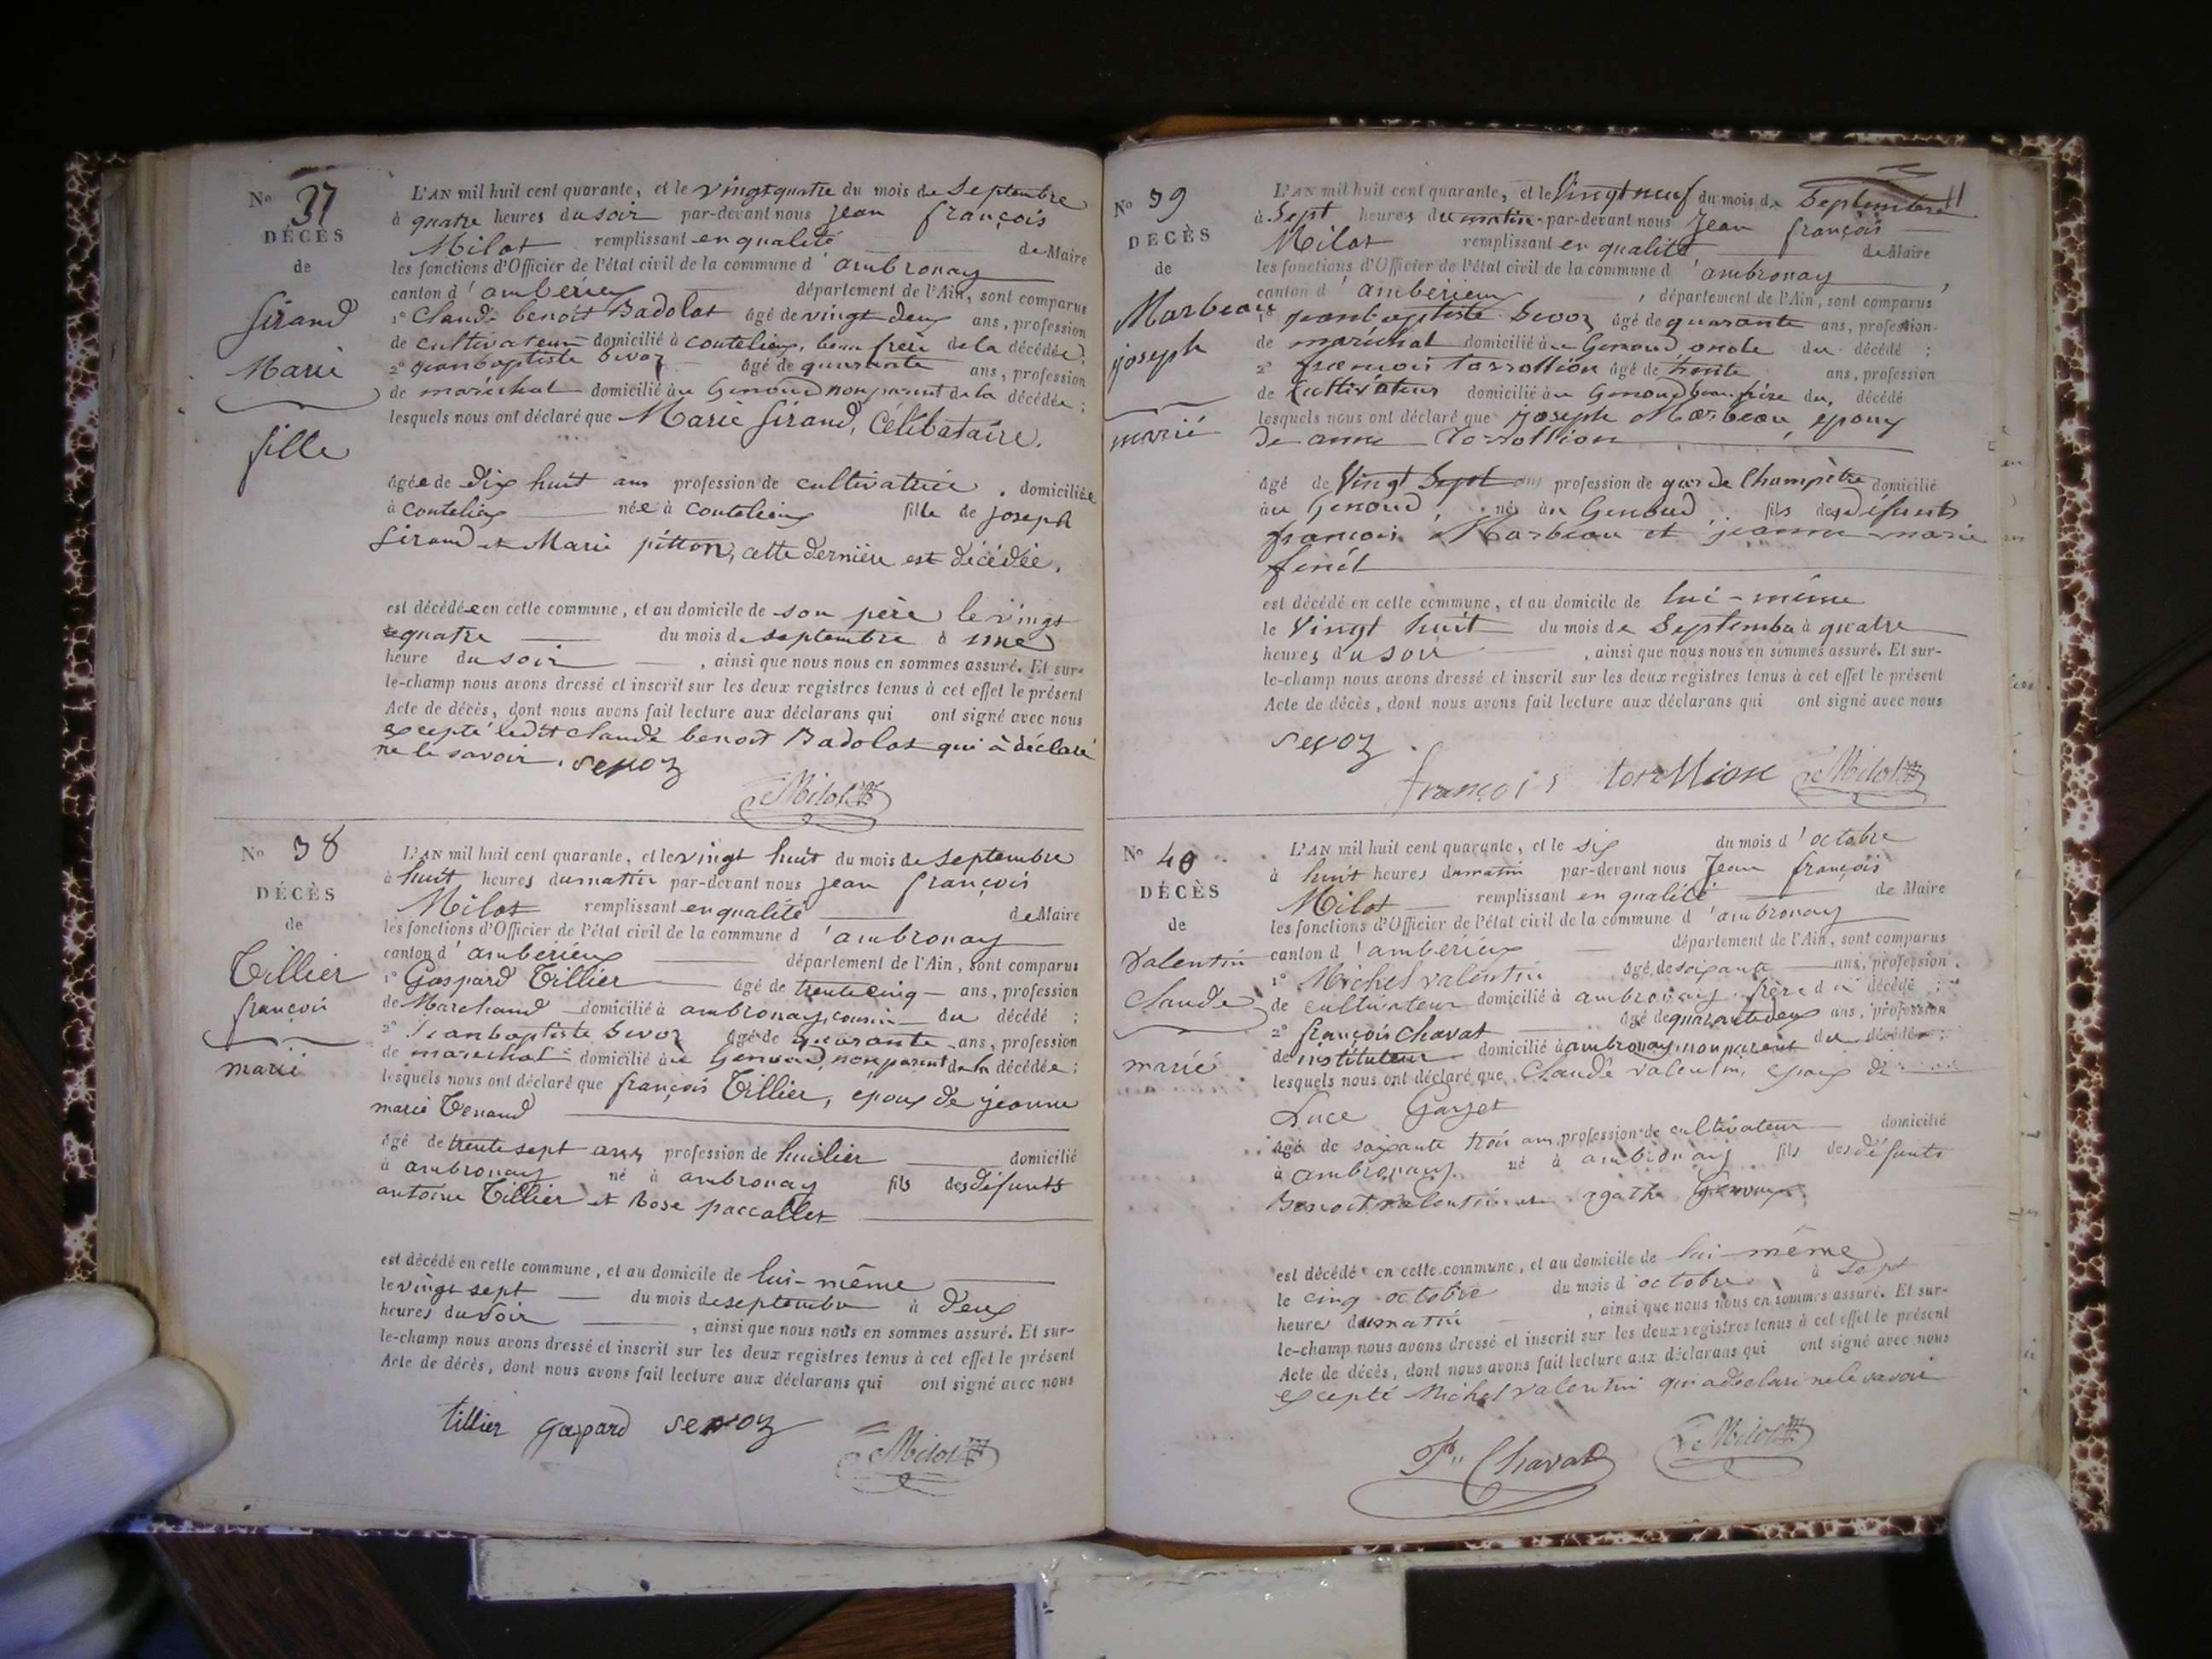 No 37
DÉCÈS
de
Girand
Marie
fille
L'AN mil huit cent quarante, et le vingt quatre du mois de Septembre
à quatre heures du soir par-devant nous Jean françois
Milot remplissant en qualité de Maire
les fonctions d'Officier de l'état civil de la commune d'ambronay
canton d'amberieu département de l'Ain, sont comparus
1° Claude benoit Badolot âgé de vingt deux ans, profession
de cultivateur domicilié à coutelieu, beau frère de la décédée;
2° jeanbaptiste Sevoz âgé de quarante ans, profession
de maréchal domicilié au Genoud non parent de la décédée;
lesquels nous ont déclaré que Marie Girand, Célibataire.
âgée de dix huit ans profession de cultivatrice, domiciliée
à coutelieu née à coutelieux fille de joseph
Girand et Marie pitton, cette dernière est décédée.
est décédée en cette commune, et au domicile de son père le vingt
quatre du mois de septembre à une
heure du soir, ainsi que nous nous en sommes assuré. Et sur-
le-champ nous avons dressé et inscrit sur les deux registres tenus à cet effet le présent
Acte de décès, dont nous avons fait lecture aux déclarans qui ont signé avec nous
excepté ledit claude benoit Badolot qui à déclaré
ne le savoir. sevoz
Milot
No 38
DÉCÈS
de
Tillier
françois
marié
L'AN mil huit cent quarante, et le vingt huit du mois de septembre
à huit heures du matin par-devant nous jean françois
Milot remplissant en qualité de Maire
les fonctions d'Officier de l'état civil de la commune d'ambronay
canton d'ambérieux département de l'Ain, sont comparus
1° Gaspard Tillier âgé de trente cinq ans, profession
de Marchand domicilié à ambronay, cousin du décédé;
2° Jeanbaptiste Sevoz âgé de quarante ans, profession
de marechal domicilié au Genoud, non parent de la décédée;
lesquels nous ont déclaré que françois Tillier, époux de jeanne
marie Tenand
âgé de trente sept ans profession de huilier domicilié
à ambronay né à ambronay fils des défunts
antoine Tillier et Rose paccallet
est décédé en cette commune, et au domicile de lui-même
le vingt sept du mois de septembre à deux
heures du soir, ainsi que nous nous en sommes assuré. Et sur-
le-champ nous avons dressé et inscrit sur les deux registres tenus à cet effet le présent
Acte de décès, dont nous avons fait lecture aux déclarans qui ont signé avec nous
tillier gaspard sevoz
Milot
11
No 39
DÉCÈS
de
Marbeau
joseph
marié
L'AN mil huit cent quarante, et le Vingt neuf du mois de Septembre
à Sept heures du matin par-devant nous Jean françois
Milot remplissant en qualité de Maire
les fonctions d'Officier de l'état civil de la commune d'ambronay,
canton d'ambérieux, département de l'Ain, sont comparus
1° jeanbaptiste Sevoz âgé de quarante ans, profession
de maréchal domicilié au Genoud oncle du décédé;
2° françois torrollion âgé de trente ans, profession
de Cultivateur domicilié au Genoud beau frère du décédé
lesquels nous ont déclaré que joseph Marbeau, epoux
de anne Torrollion
âgé de Vingt Sept ans profession de garde Champêtre domicilié
au Genoud, né au Genoud fils des défunts
françois Marbeau et jeanne marie
est décédé en cette commune, et au domicile de lui-même
le Vingt huit du mois de Septembre à quatre
heures du soir, ainsi que nous nous en sommes assuré. Et sur-
le-champ nous avons dressé et inscrit sur les deux registres tenus à cet effet le présent
Acte de décès, dont nous avons fait lecture aux déclarans qui ont signé avec nous
sevoz
françois torollion Milot
No 40
DÉCÈS
de
Valentin
Claude
marié
L'AN mil huit cent quarante, et le six du mois d'octobre
à huit heures du matin par-devant nous Jean françois
Milot remplissant en qualité de Maire
les fonctions d'Officier de l'état civil de la commune d'ambronay
canton d'ambérieux département de l'Ain, sont comparus
1° Michel valentin âgé de soixante ans, profession
de cultivateur domicilié à ambronay frère du décédé;
2° françois Chavat âgé de quarante deux ans, profession
de instituteur domicilié à ambronay, non parent du décédé;
lesquels nous ont déclaré que Claude valentin, epoux de
Luce Garget
âgé de soixante trois ans, profession de cultivateur domicilié
à ambronay né à ambronay fils des défunts
Benoit valentin et agathe
est décédé en cette commune, et au domicile de lui-même
le cinq octobre du mois d'octobre à sept
heures du matin, ainsi que nous nous en sommes assuré. Et sur-
le-champ nous avons dressé et inscrit sur les deux registres tenus à cet effet le présent
Acte de décès, dont nous avons fait lecture aux déclarans qui ont signé avec nous
excepté Michel valentin qui a déclaré ne le savoir
Chavat Milot